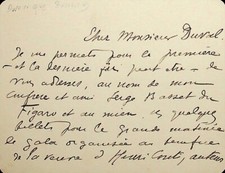 Cher Monsieur Duval
Je me permets pour la première
et la dernière fois peut-être - de
vous adresser, au nom de mon
confrère et ami Serge Basset du
Figaro et au mien, quelques
billets pour la grande matinée
de gala organisée au bénéfice
de la veuve d'Henri Conti, auteur